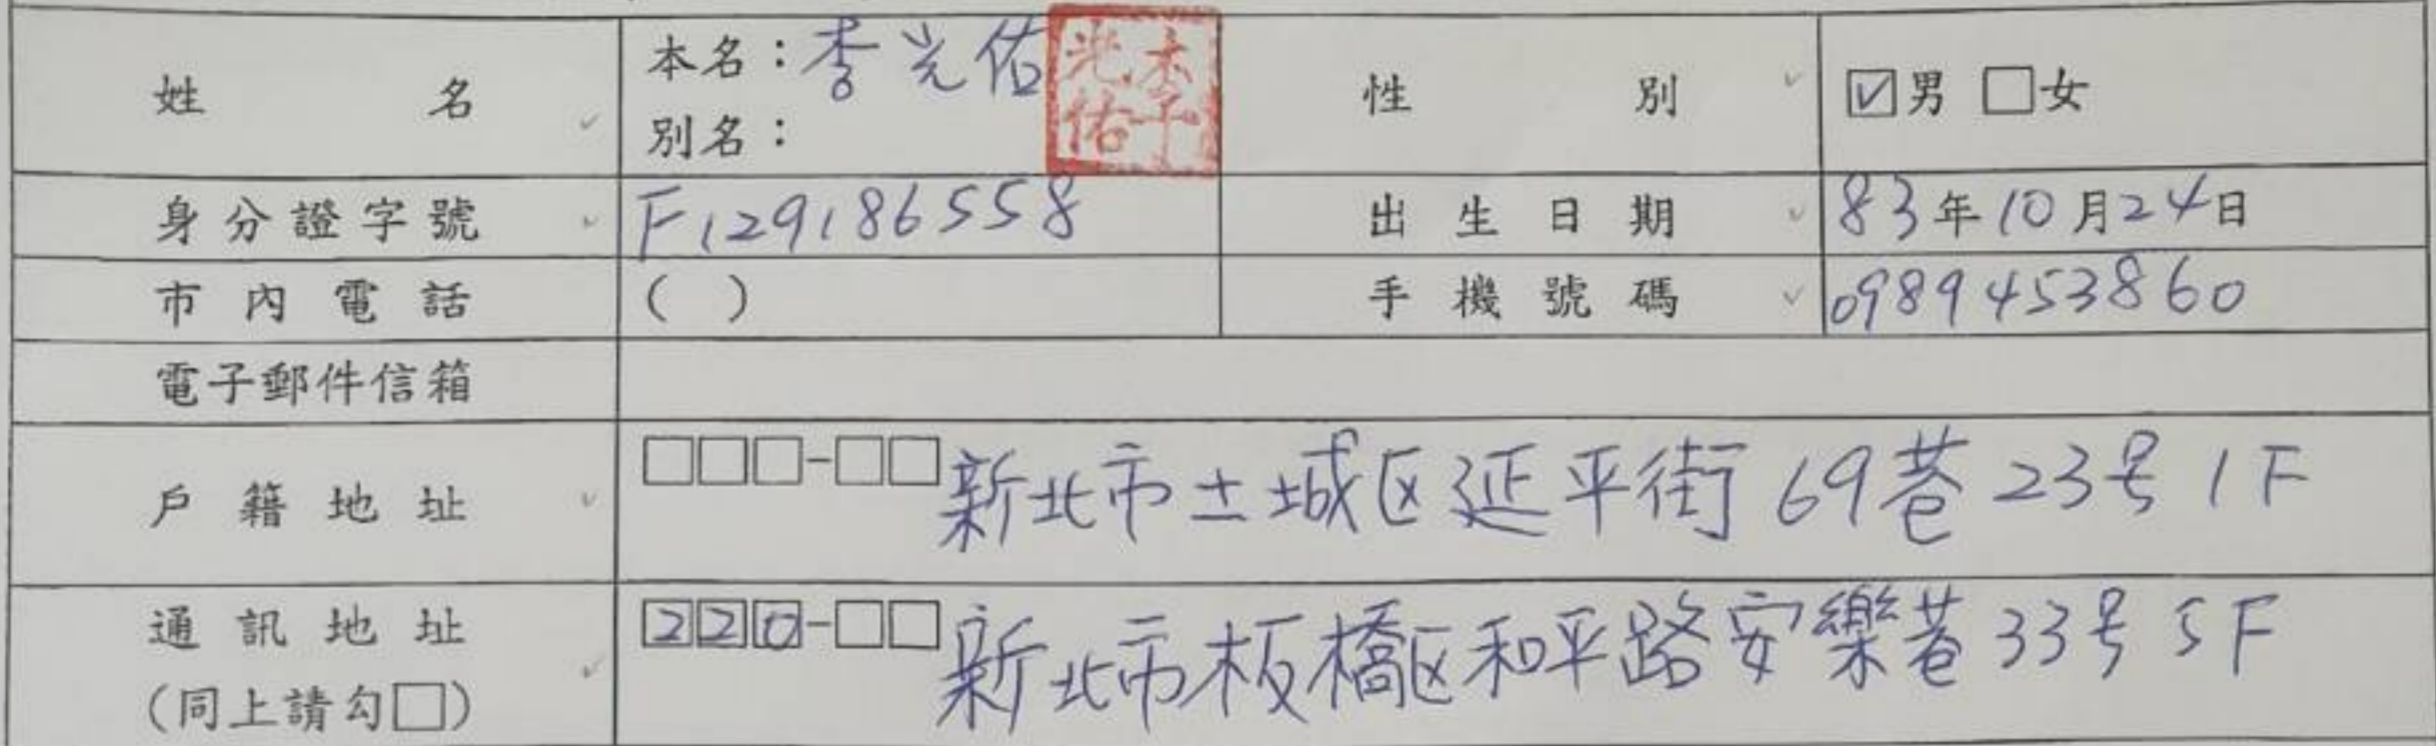 姓名 本名：李光佑 性別 ☑男 □女
別名：
李光佑
身分證字號 F129186558 出生日期 83年10月24日
市內電話 ( ) 手機號碼 0989453860
電子郵件信箱
戶籍地址 □□□-□□ 新北市土城区延平街69巷23号1F
通訊地址 220-□□ 新北市板橋区和平路安樂巷33号5F
(同上請勾□)